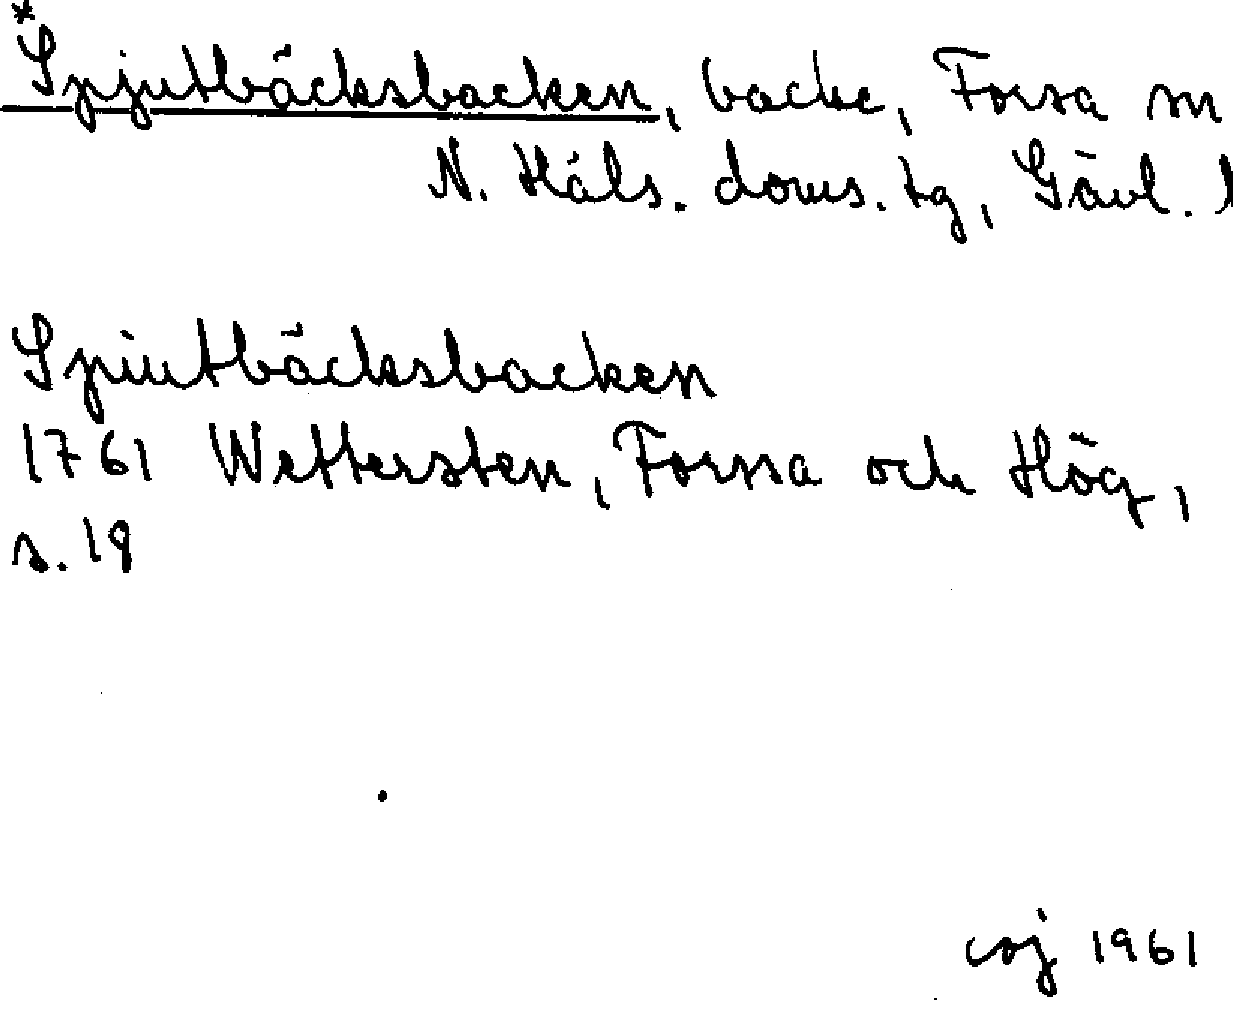 *Spjutbäcksbacken, backe, Forsa sn
N. Häls. doms. tg, Gävl. l
Spiutbäcksbacken
1761 Wettersten, Forssa och Hög,
s. 19
csj 1961